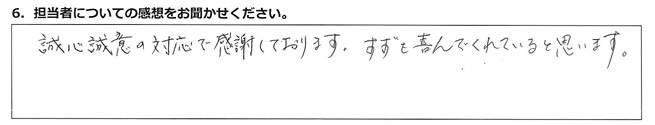 6．担当者についての感想をお聞かせください。
誠心誠意の対応で感謝しております。すずも喜んでくれていると思います。